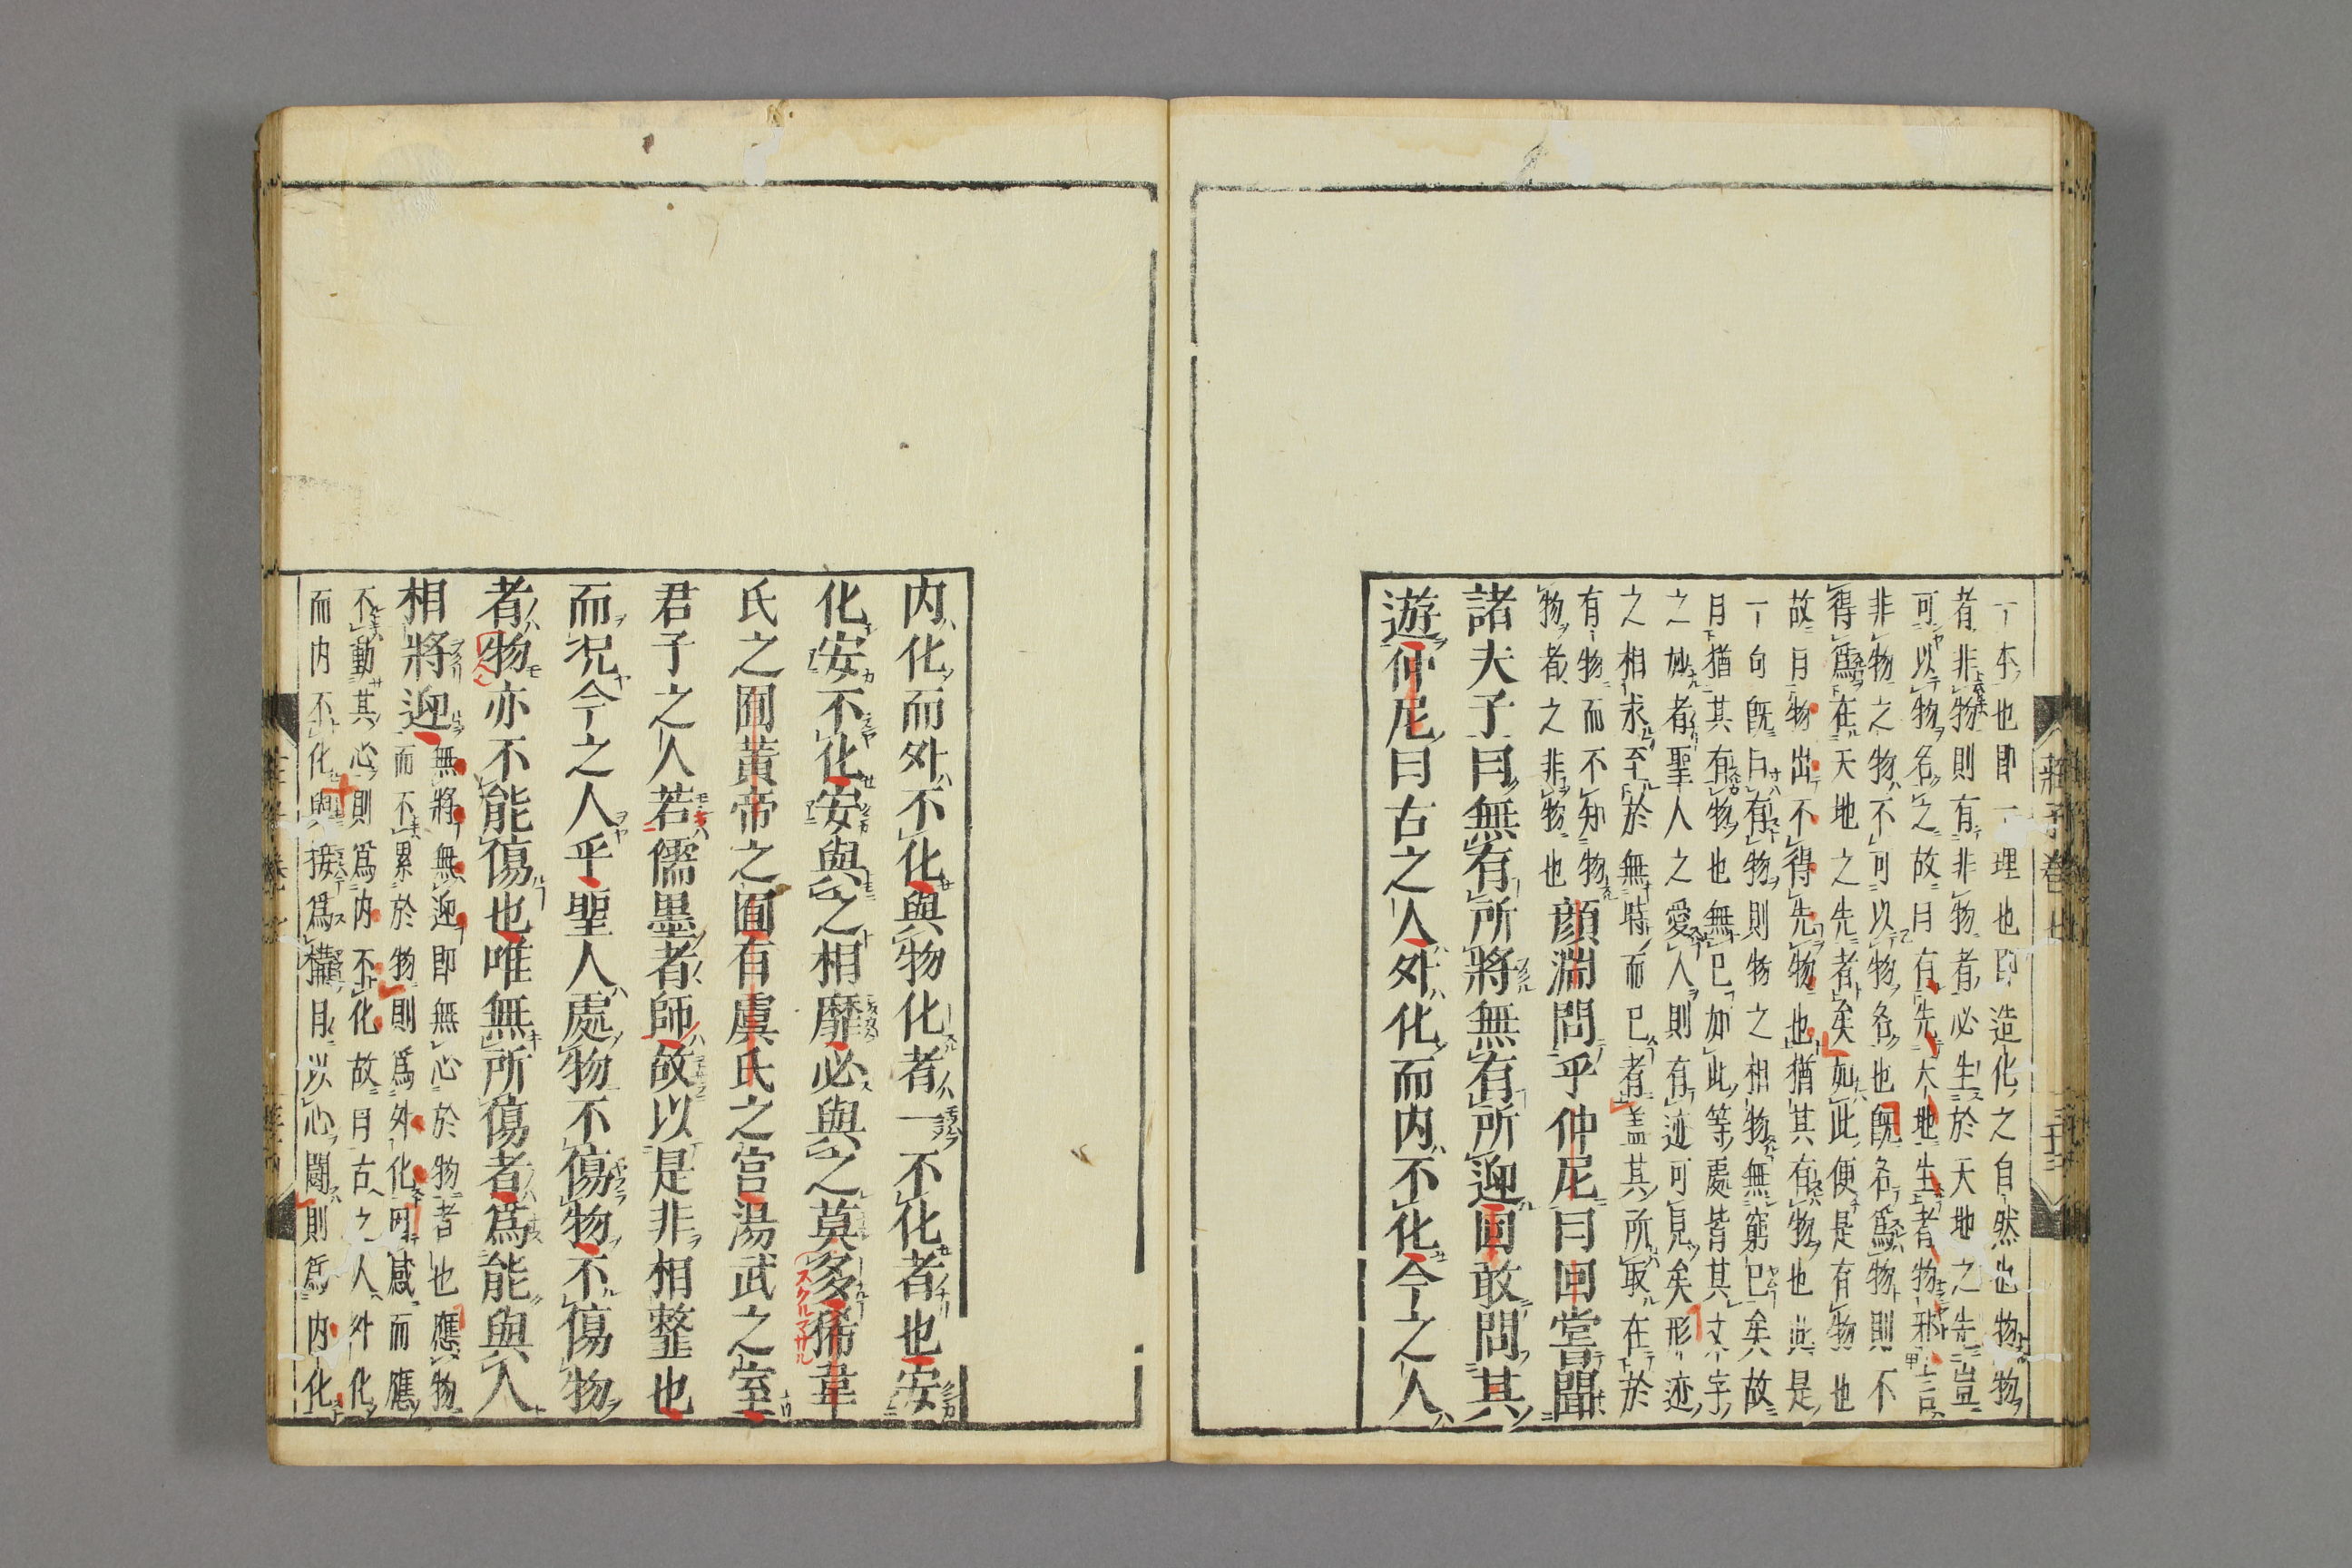 一本也即一理也即造化之自然也物物
者非物則有非物者必生於天地之先豈
可以物名之故曰有先天地生者物邪言
非物之物不可以物名也既名爲物則不
得爲在天地之先者矣如此便是有物也
故曰物出不得先物也猶其有物也此是
一句既曰有物則物之相物無窮已矣故
曰猶其有物也無已如此等處皆其文字
之妙者聖人之愛人則有迹可見矣形迹
之相求至於無時而已者蓋其所取在於
有物而不知物
物者之非物也
顔淵問乎仲尼曰回嘗聞
諸夫子曰無有所將無有所迎回敢問其
遊仲尼曰古之人外化而内不化今之人
莊子巻七
内化而外不化與物化者一不化者也安
化安不化安與之相靡必與之莫多狶韋
氏之囿黃帝之圃有虞氏之宮湯武之室
君子之人若儒墨者師故以是非相䪠也
而況今之人乎聖人處物不傷物不傷物
者物亦不能傷也唯無所傷者爲能與人
相將迎
無將無迎即無心於物者也應物
而不累於物則爲外化因感而應
不動其心則爲内不化故曰古之人外化
而内不化與接爲構日以心鬪則爲内化